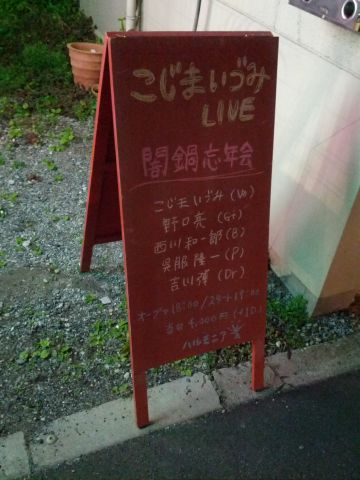 こじまいづみ
LIVE
闇鍋忘年会
こじまいづみ(Vo)
野口亮(Gt)
西川和一郎(B)
呉服隆一(P)
吉川弾(Dr)
オープン18:00/スタート19:00
当日4,000円(+1D.)
ハルモニア